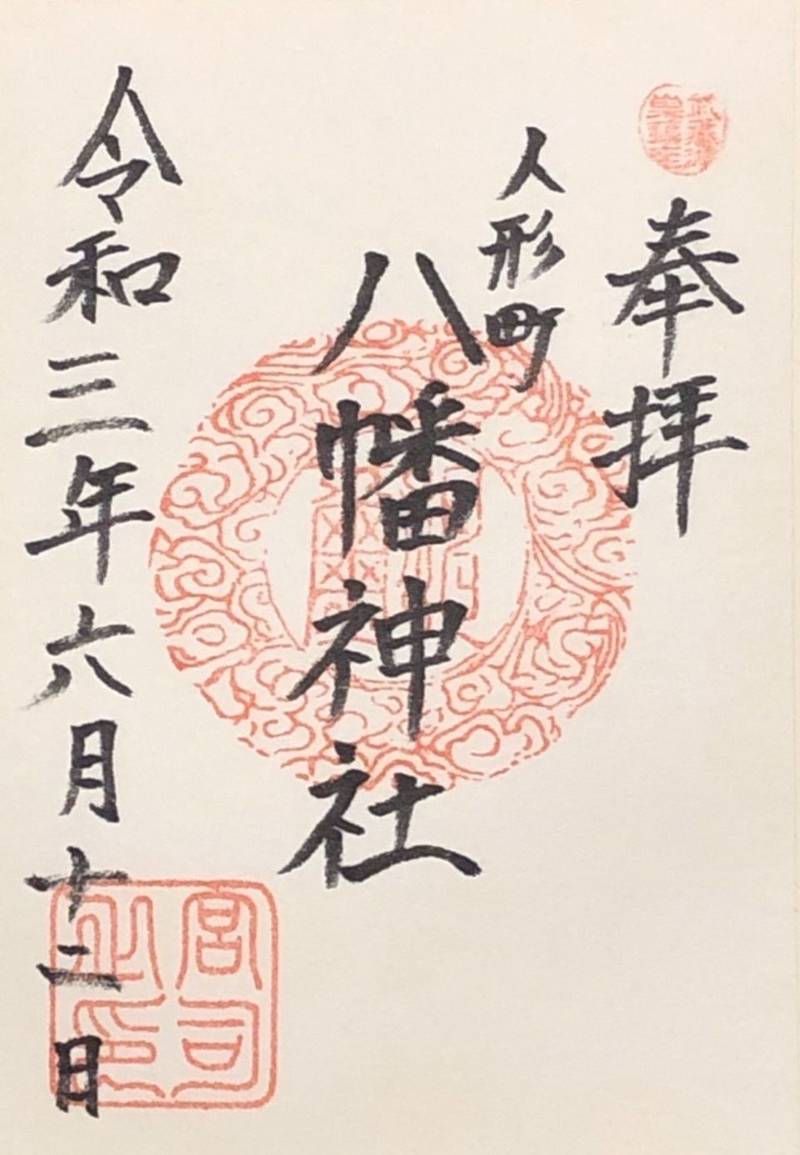 奉拝
人形町
八幡神社
令和三年六月十二日
宮司之印